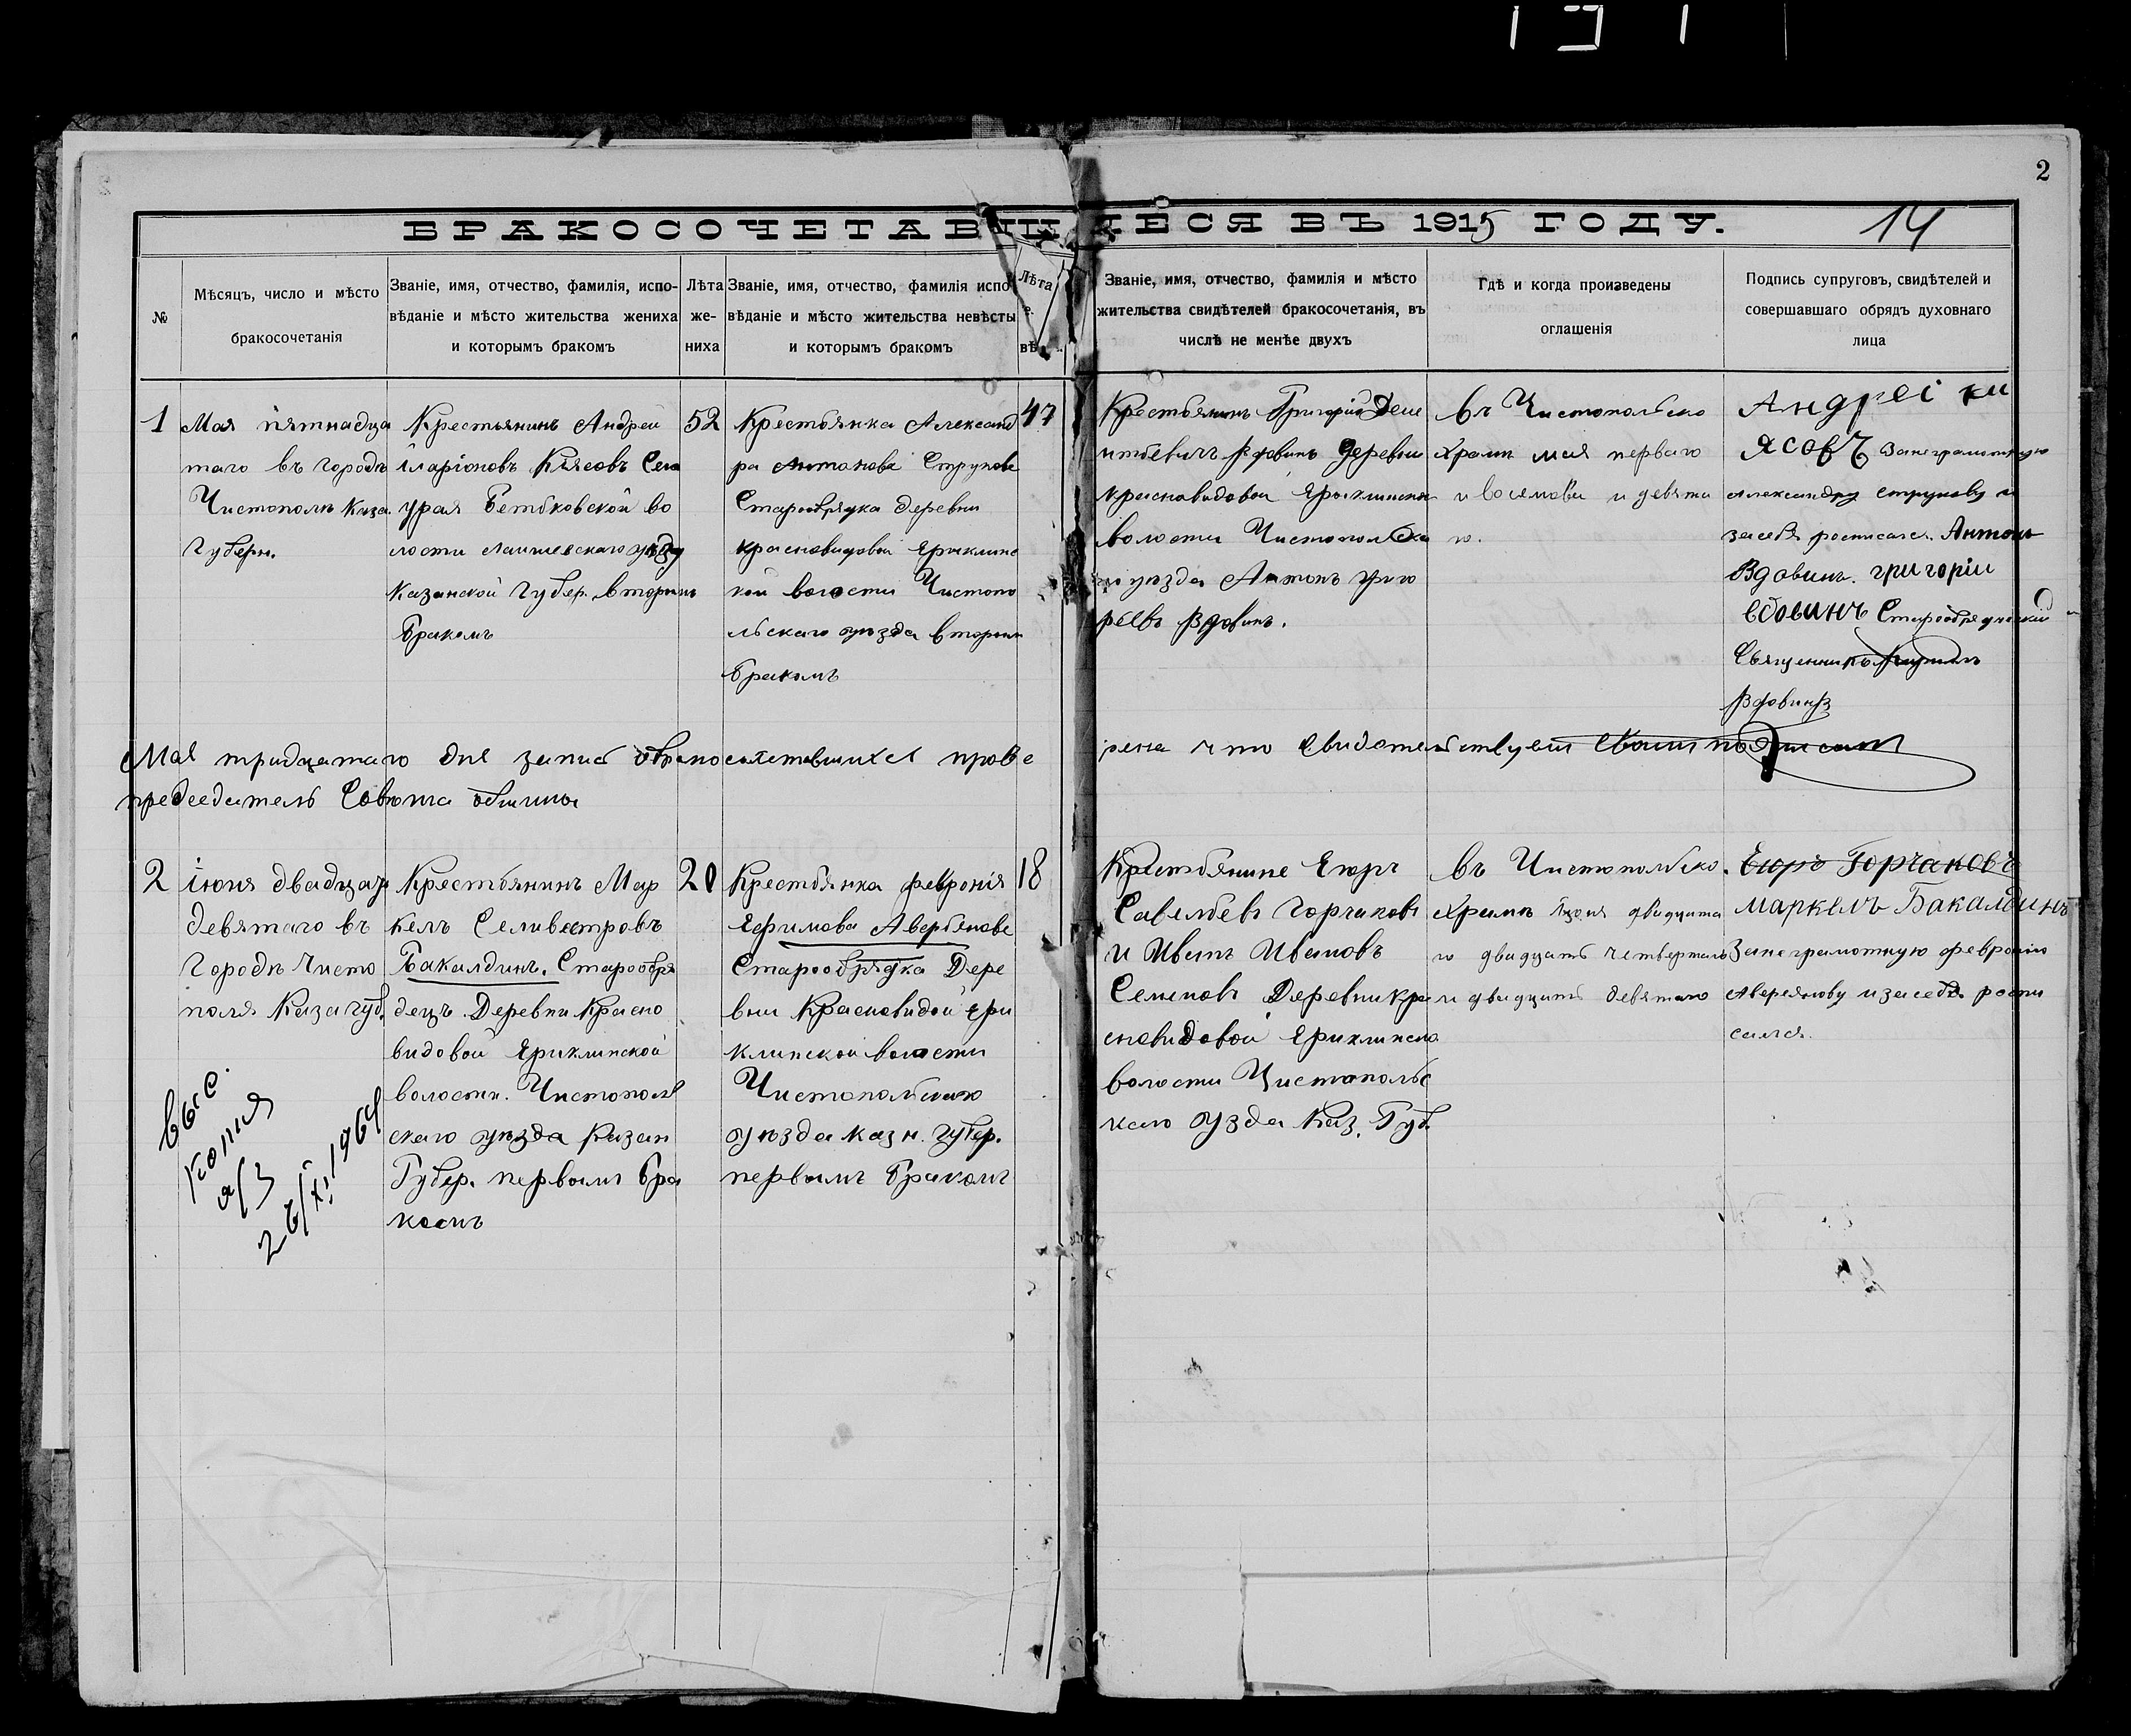 2
БРАКОСОЧЕТАВШІЕСЯ ВЪ 1915 ГОДУ.
14
№
Мѣсяцъ, число и мѣсто
бракосочетанія
Званіе, имя, отчество, фамилія, испо-
вѣданіе и мѣсто жительства жениха
и которымъ бракомъ
Лѣта
же-
ниха
Званіе, имя, отчество, фамилія испо-
вѣданіе и мѣсто жительства невѣсты
и которымъ бракомъ
Лѣта
вѣ
Званіе, имя, отчество, фамилія и мѣсто
жительства свидѣтелей бракосочетанія, въ
числѣ не менѣе двухъ
Гдѣ и когда произведены
оглашенія
Подпись супруговъ, свидѣтелей и
совершавшаго обрядъ духовнаго
лица
1
Мая пятнадца
таго въ городѣ
Чистополѣ Каза.
Губерн.
Крестьянинъ Андрей
Іларіоновъ Кіясовъ Села
урая Бетьковской во
лости Лаишевскаго уѣзду
Казанской Губер. вторымъ
бракомъ
52
Крестьянка Александ
ра Антонова Струкова
Старообрядка деревни
красновидовой Ерыклинс
кой волости Чистопо
льскаго уѣзда вторым
бракомъ
47
Крестьянинъ Григорій Деме
нтьевичъ Вдовинъ деревни
красновидовой Ерыклинской
волости Чистопольска
го уѣзда Антонъ Григо
рьевъ Вдовинъ.
въ Чистопольско
Храмѣ мая перваго
и восемова и девята
го.
Андреі ки
ясовъ Занеграмотную
Александру струкову и
засебя росписался. Антонъ
Вдовинъ. григоріи
вдовинъ Старообрядческій
Священникъ
Вдовинъ
Мая тридцатаго дня запись обракосочетавшихся прове
рена что свидетельствуем своим подписом
председатель Совѣта общины
2
іюня двадцать
девятаго въ
Городѣ Чисто
поля Каза губ.
Крестьянинъ Мар
келъ Селивестровъ
Бакалдинъ. Старообря
децъ. Деревни Красно
видовой Ериклинской
волости. Чистополь
скаго уѣзда Казан
Губер. первымъ бра
комъ
20
Крестьянка феврония
Ефимова Аверьянова
Старообрядка Дере
вни Красновидой Ери
клинской волости
Чистопольскаго
уѣзда казн. губер.
первымъ бракомъ
18
Крестьянине Егоръ
Савельевъ Горчаковъ
и Иванъ Ивановъ
Семеновъ Деревни кра
сновидовой Ериклинско
волости Чистопольс
каго уѣзда Каз. Губ.
въ Чистопольско.
Храмѣ Іюня двадцата
го двадцать четвертаго
и двадцать девятаго
Егоръ Горчаковъ
маркелъ Бакалдинъ
Занеграмотную февронию
Аверяянову и засебя роспи
сался.
выс.
копия
а/з
26/XI 1964